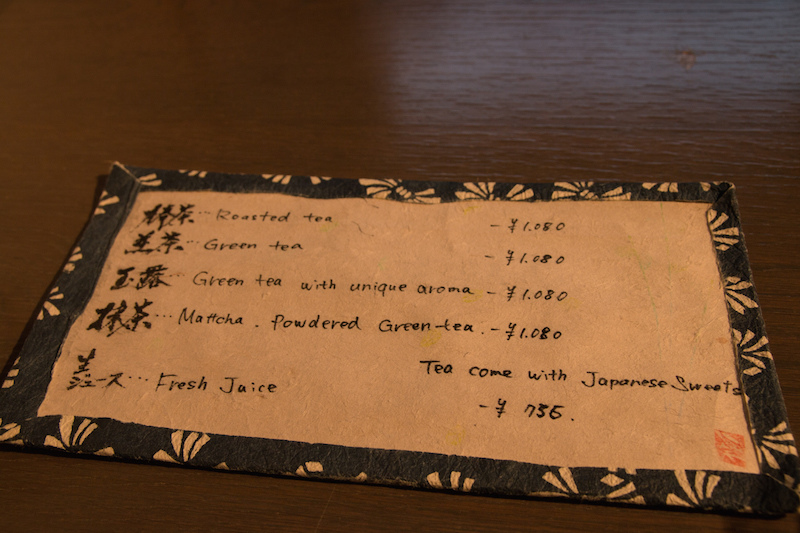 棒茶…Roasted tea -¥1.080
煎茶…Green tea -¥1.080
玉露…Green tea with unique aroma -¥1.080
抹茶…Mattcha. Powdered Green-tea. -¥1.080
Tea come with Japanese Sweets
生ジュース…Fresh Juice -¥ 735.